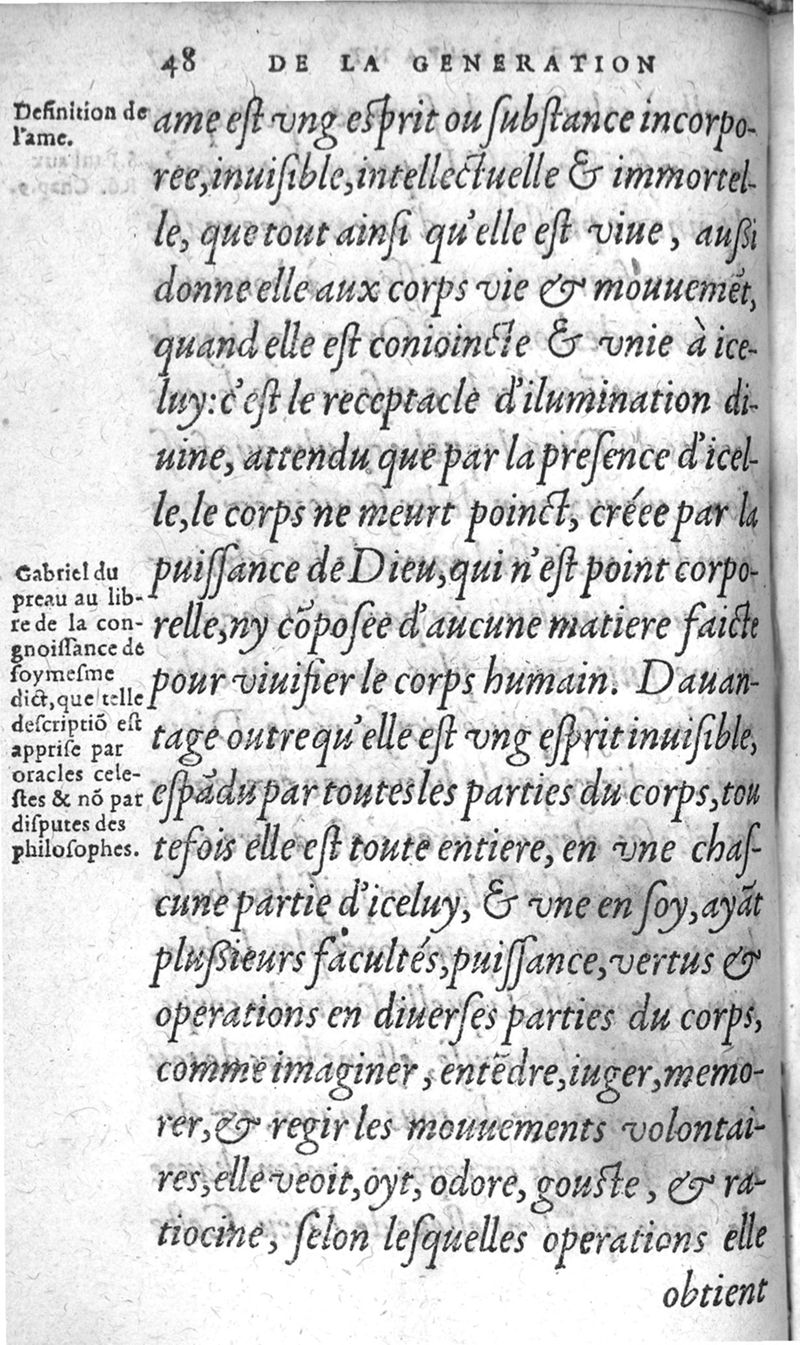 48 DE LA GENERATION
Definition de
l'ame.
ame eſt vng eſprit ou ſubſtance incorpo-
ree, inuiſible, intellectuelle & immortel-
le, que tout ainſi qu'elle eſt viue, außi
donne elle aux corps vie & mouuemẽt,
quand elle eſt conioincte & vnie à ice-
luy: c'eſt le receptacle d'ilumination di-
uine, attendu que par la preſence d'icel-
le, le corps ne meurt poinct, créee par la
puiſſance de Dieu, qui n'eſt point corpo-
relle, ny cõpoſee d'aucune matiere faicte
pour viuifier le corps humain. Dauan-
tage outre qu'elle eſt vng eſprit inuiſible,
eſpãdu par toutes les parties du corps, tou
tefois elle eſt toute entiere, en vne chaſ-
cune partie d'iceluy, & vne en ſoy, ayãt
plußieurs facultés, puiſſance, vertus &
operations en diuerſes parties du corps,
comme imaginer, entẽdre, iuger, memo-
rer, & regir les mouuements volontai-
res, elle veoit, oyt, odore, gouſte, & ra-
tiocine, ſelon leſquelles operations elle
obtient
Gabriel du
preau au lib-
re de la con-
gnoiſſance de
ſoymeſme
dict, que telle
deſcriptiõ eſt
appriſe par
oracles cele-
ſtes & nõ par
diſputes des
philoſophes.